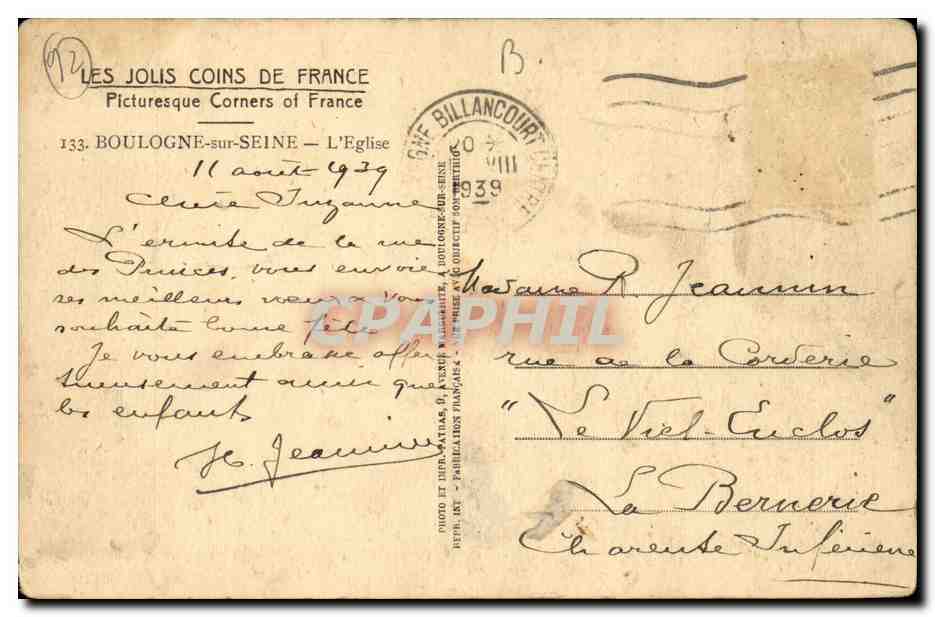 92
B.
LES JOLIS COINS DE FRANCE
Picturesque Corners of France
133. BOULOGNE-sur-SEINE — L'Eglise
11 août 1939
Chère Suzanne
L'ermite de la rue
des Princes, vous envoie
ses meilleurs vœux & vous
souhaite bonne fête
Je vous embrasse affec
tueusement ainsi que
les enfants
H. Jeannin
PHOTO ET IMPR. PATRAS, 9, AVENUE MARGUERITE, A BOULOGNE-SUR-SEINE
REPR. INT - FABRICATION FRANÇAISE - VUE PRISE AVEC OBJECTIF SOM BERTHIOT
GNE BILLANCOURT
VIII
1939
Madame R. Jeannin
rue de la Corderie
"Le Viel-Enclos"
La Bernerie
Charente Inférieure
CPAPHIL